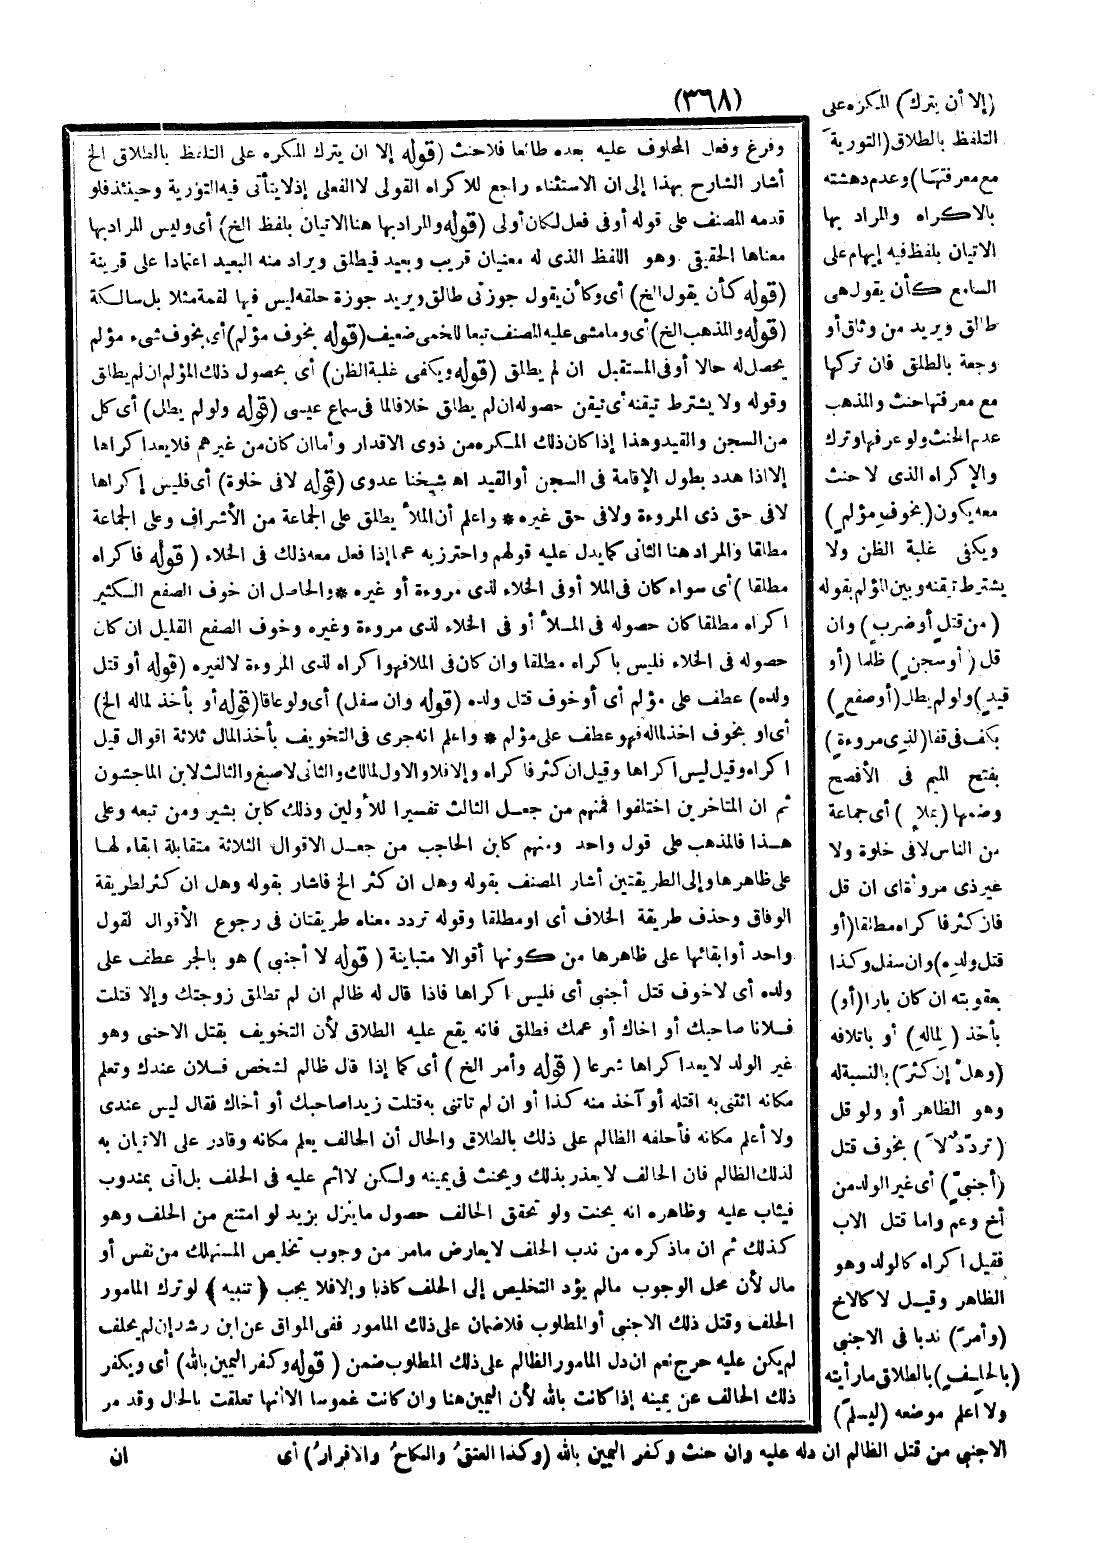 (٣٦٨)
(إلا أن يترك) المكره على
التلفظ بالطلاق (التورية
مع معرفتها) وعدم دهشته
بالاكراه والمراد بها
الاتيان بلفظ فيه إيهام على
السامع كأن يقول هى
طالق ويريد من وثاق أو
وجعة بالطلق فان تركها
مع معرفتها حنث والمذهب
عدم الحنث ولو عرفها وترك
والإكراه الذى لا حنث
معه يكون (بخوف مؤلم)
ويكفى غلبة الظن ولا
يشترط تيقنه وبين المؤلم بقوله
(من قتل أو ضرب) وان
قل (أو سجن) ظلما (أو
قيد) ولو لم يطل (أو صفع)
بكف فى قفا (لذى مروءة)
بفتح الميم فى الأفصح
وضمها (بملإ) أى جماعة
من الناس لا فى خلوة ولا
غير ذى مروأة اى ان قل
فان كثر فاكراه مطلقا (أو
قتل ولده) وان سفل وكذا
بعقوبته ان كان بارا (أو)
بأخذ (لماله) أو باتلافه
(وهل إن كثر) بالنسبة له
وهو الظاهر أو ولو قل
(تردد لا) بخوف قتل
(أجنبى) أى غير الولد من
أخ وعم واما قتل الاب
فقيل اكراه كالولد وهو
الظاهر وقيل لا كالاخ
(وأمر) ندبا فى الاجنبى
(بالحلف) بالطلاق ما رأيته
ولا اعلم موضعه (ليسلم)
الاجنبى من قتل الظالم ان دله عليه وان حنث وكفر اليمين بالله (وكذا العتق والنكاح والاقرار) أى
ان
وفرغ وفعل المحلوف عليه بعده طائعا فلا حنث (قوله إلا ان يترك المكره على التلفظ بالطلاق الخ
أشار الشارح بهذا إلى ان الاستثناء راجع للاكراه القولى لا الفعلى إذ لا يتأتى فيه التورية وحينئذ فلو
قدمه المصنف على قوله أو فى فعل لكان أولى (قوله والمراد بها هنا الاتيان بلفظ الخ) أى وليس المراد بها
معناها الحقيقى وهو اللفظ الذى له معنيان قريب وبعيد فيطلق ويراد منه البعيد اعتمادا على قرينة
(قوله كأن يقول الخ) أى وكأن يقول جوزتى طالق ويريد جوزة حلقه ليس فيها لقمة مثلا بل سالكة
(قوله والمذهب الخ) أى وما مشى عليه المصنف تبعا للخمى ضعيف (قوله بخوف مؤلم) أى بخوف شىء مؤلم
يحصل له حالا أو فى المستقبل ان لم يطلق (قوله ويكفى غلبة الظن) أى بحصول ذلك المؤلم ان لم يطلق
وقوله ولا يشترط تيقنه أى تيقن حصوله ان لم يطلق خلافا لما فى سماع عيسى (قوله ولو لم يطل) أى كل
من السجن والقيد وهذا إذا كان ذلك المكره من ذوى الاقدار وأما ان كان من غيرهم فلا يعد اكراها
إلا اذا هدد بطول الإقامة فى السجن أو القيد اه شيخنا عدوى (قوله لا فى خلوة) أى فليس إكراها
لا فى حق ذى المروءة ولا فى حق غيره * واعلم أن الملأ يطلق على الجماعة من الأشراف وعلى الجماعة
مطلقا والمراد هنا الثانى كما يدل عليه قولهم واحترز به عما إذا فعل معه ذلك فى الخلاء (قوله فاكراه
مطلقا) أى سواء كان فى الملا أو فى الخلاء لذى مروءة أو غيره * والحاصل ان خوف الصفع الكثير
اكراه مطلقا كان حصوله فى الملأ أو فى الخلاء لذى مروءة وغيره وخوف الصفع القليل ان كان
حصوله فى الخلاء فليس باكراه مطلقا وان كان فى الملا فهو اكراه لذى المروءة لا لغيره (قوله أو قتل
ولده) عطف على مؤلم أى أو خوف قتل ولده (قوله وان سفل) أى ولو عاقا (قوله أو بأخذ لماله الخ)
أى او بخوف اخذ لماله فهو عطف على مؤلم * واعلم انه جرى فى التخويف بأخذ المال ثلاثة اقوال قيل
اكراه وقيل ليس اكراها وقيل ان كثر فاكراه وإلا فلا والاول لمالك والثانى لاصبغ والثالث لابن الماجشون
ثم ان المتاخرين اختلفوا فمنهم من جعل الثالث تفسيرا للأولين وذلك كابن بشير ومن تبعه وعلى
هذا فالمذهب على قول واحد ومنهم كابن الحاجب من جعل الاقوال الثلاثة متقابلة ابقاء لها
على ظاهرها وإلى الطريقتين أشار المصنف بقوله وهل ان كثر الخ فاشار بقوله وهل ان كثر لطريقة
الوفاق وحذف طريقة الخلاف أى او مطلقا وقوله تردد معناه طريقتان فى رجوع الأقوال لقول
واحد أو ابقائها على ظاهرها من كونها أقوالا متباينة (قوله لا أجنبى) هو بالجر عطف على
ولده أى لا خوف قتل أجنبى أى فليس اكراها فاذا قال له ظالم ان لم تطلق زوجتك وإلا قتلت
فلانا صاحبك أو اخاك أو عمك فطلق فانه يقع عليه الطلاق لأن التخويف بقتل الاجنبى وهو
غير الولد لا يعد اكراها شرعا (قوله وأمر الخ) أى كما إذا قال ظالم لشخص فلان عندك وتعلم
مكانه ائتنى به اقتله أو آخذ منه كذا أو ان لم تاتنى به قتلت زيدا صاحبك أو أخاك فقال ليس عندى
ولا أعلم مكانه فأحلفه الظالم على ذلك بالطلاق والحال أن الحالف يعلم مكانه وقادر على الاتيان به
لذلك الظالم فان الحالف لا يعذر بذلك ويحنث فى يمينه ولكن لا اثم عليه فى الحلف بل أتى بمندوب
فيثاب عليه وظاهره انه يحنث ولو تحقق الحالف حصول ما ينزل بزيد لو امتنع من الحلف وهو
كذلك ثم ان ما ذكره من ندب الحلف لا يعارض ما مر من وجوب تخليص المستهلك من نفس أو
مال لأن محل الوجوب ما لم يؤد التخليص إلى الحلف كاذبا وإلا فلا يجب (تنبيه) لو ترك المامور
الحلف وقتل ذلك الاجنبى أو المطلوب فلا ضمان على ذلك المامور ففى المواق عن ابن رشد إن لم يحلف
لم يكن عليه حرج نعم ان دل المامور الظالم على ذلك المطلوب ضمن (قوله وكفر اليمين بالله) أى ويكفر
ذلك الحالف عن يمينه إذا كانت بالله لأن اليمين هنا وان كانت غموسا الا أنها تعلقت بالحال وقد مر